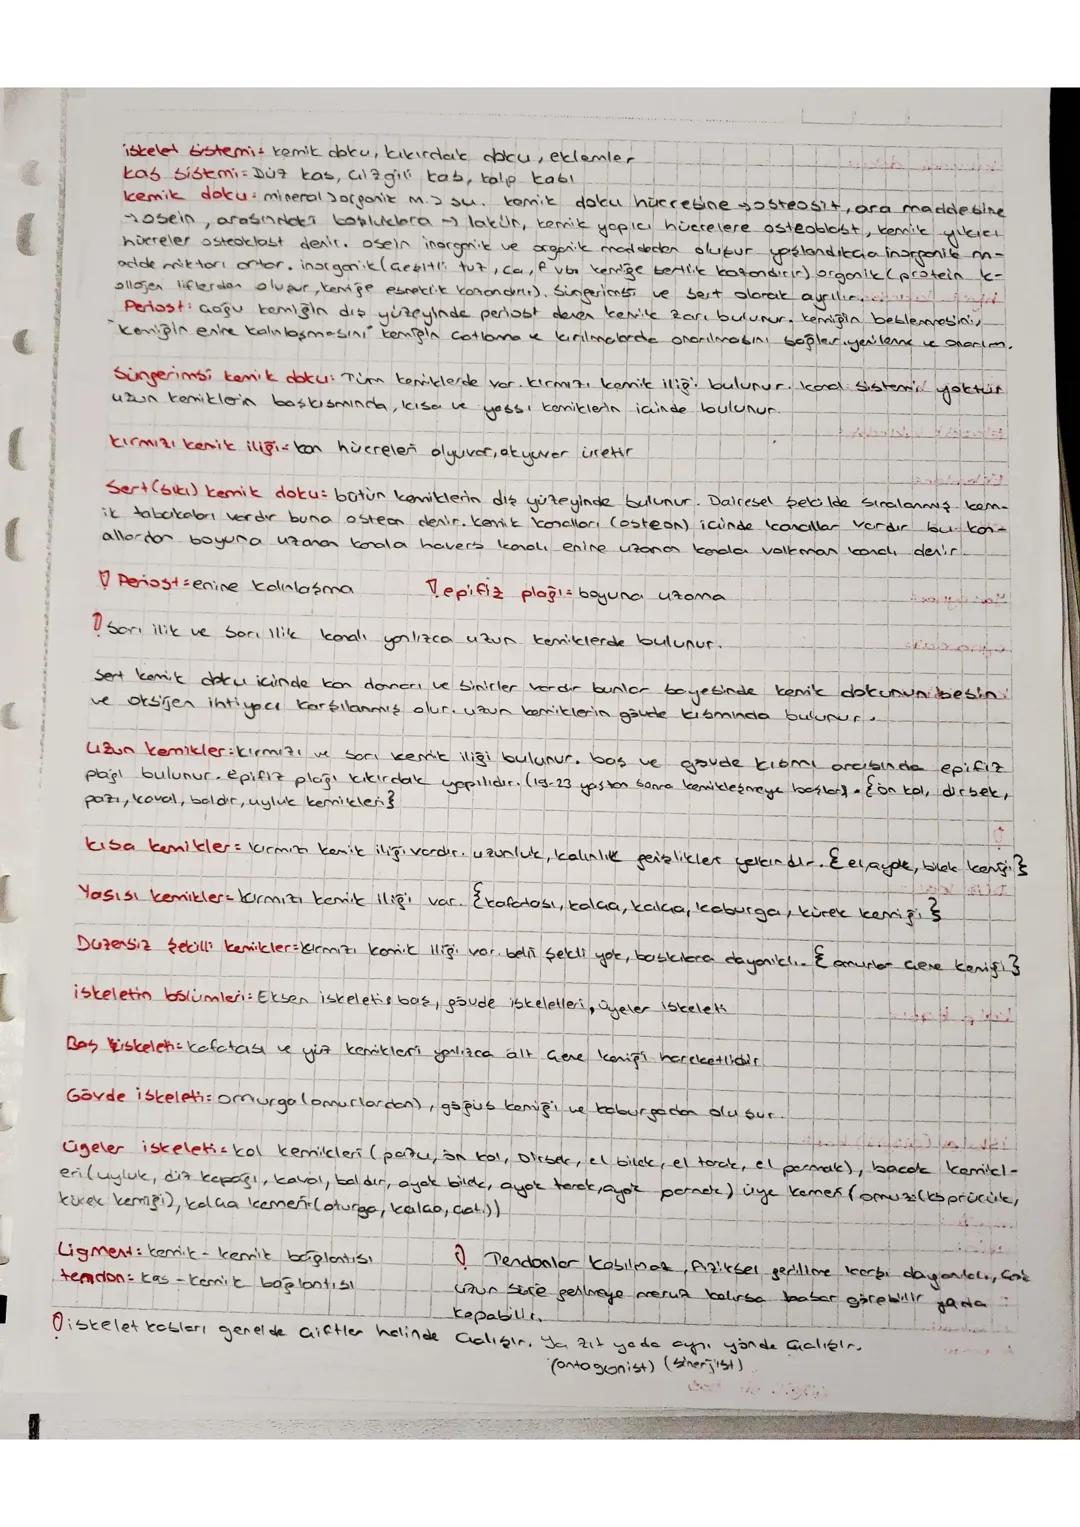 iskelet sistemi: kemik doku, kıkırdak doku, eklemler
kas sistemi: Düz kas, çizgili kas, kalp kası
kemik doku: mineral > organik m. > su. kemik doku hücresine → osteosit, ara maddesine
→ osein, arasındaki boşluklara → lakün, kemik yapıcı hücrelere osteoblast, kemik yıkıcı
hücreler osteoklast denir. osein inorganik ve organik maddeden oluşur yaşlandıkça inorganik m-
adde miktarı artar. inorganik (çeşitli tuz, ca, f vb. kemiğe sertlik kazandırır) organik (protein k-
ollojen liflerden oluşur, kemiğe esneklik kazandırır). Süngerimsi ve sert olarak ayrılır.
Periost: çoğu kemiğin dış yüzeyinde periost denen kemik zarı bulunur. kemiğin beslenmesini,
"kemiğin enine kalınlaşmasını" kemiğin çatlama ve kırılmalarda onarılmasını sağlar. yenilenme ve onarım.
Süngerimsi kemik doku: Tüm kemiklerde var. kırmızı kemik iliği bulunur. kanal sistemi yoktur
uzun kemiklerin baş kısmında, kısa ve yassı kemiklerin içinde bulunur.
kırmızı kemik iliği: kan hücreleri alyuvar, akyuvar üretir
Sert (sıkı) kemik doku: bütün kemiklerin dış yüzeyinde bulunur. Dairesel şekilde sıralanmış kem-
ik tabakaları vardır buna osteon denir. kemik kanalları (osteon) içinde kanallar vardır bu kan-
allardan boyuna uzanan kanala havers kanalı enine uzanan kanala volkman kanalı denir.
Periost: enine kalınlaşma epifiz plağı: boyuna uzama
Sarı ilik ve sarı ilik kanalı yalnızca uzun kemiklerde bulunur.
Sert kemik doku içinde kan damarı ve sinirler vardır bunlar sayesinde kemik dokunun besin
ve oksijen ihtiyacı karşılanmış olur. uzun kemiklerin gövde kısmında bulunur.
Uzun kemikler: kırmızı ve sarı kemik iliği bulunur. baş ve gövde kısmı arasında epifiz
plağı bulunur. epifiz plağı kıkırdak yapılıdır. (19-23 yaştan sonra kemikleşmeye başlar). {ön kol, dirsek,
pazı, kaval, baldır, uyluk kemikleri}
kısa kemikler: kırmızı kemik iliği vardır. uzunluk, kalınlık genişlikler yakındır. {el, ayak, bilek kemiği}
Yassı kemikler: kırmızı kemik iliği var. {kafatası, kalça, kalça, kaburga, kürek kemiği}
Düzensiz şekilli kemikler: kırmızı kemik iliği var. belli şekli yok, baskılara dayanıklı. {omurlar çene kemiği}
iskeletin bölümleri: Eksen iskeleti: baş, gövde iskeletleri, üyeler iskeleti
Baş iskeleti: kafatası ve yüz kemikleri yalnızca alt çene kemiği hareketlidir
Gövde iskeleti: omurga (omurlardan), göğüs kemiği ve kaburgadan oluşur.
üyeler iskeleti: kol kemikleri (pazu, ön kol, Dirsek, el bilek, el tarak, el parmak), bacak kemikl-
eri (uyluk, diz kapağı, kaval, baldır, ayak bilek, ayak tarak, ayak parmak) üye kemeri (omuz (köprücük,
kürek kemiği), kalça kemeri (oturga, kalça, çatı))
Ligment: kemik - kemik bağlantısı
tendon: kas - kemik bağlantısı
Tendonlar kasılmaz, fiziksel gerilime karşı dayanıklı, çok
uzun süre gerilmeye maruz kalırsa hasar görebilir yada
kopabilir.
iskelet kasları genelde çiftler halinde çalışır. Ya zıt yada aynı yönde çalışır.
(antagonist) (sinerjist)